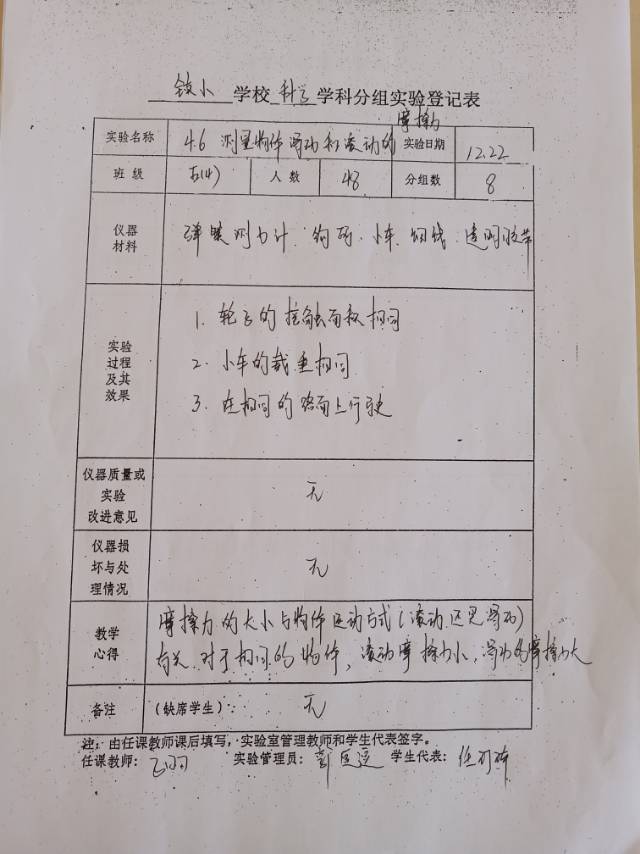 铁小 学校 科学 学科分组实验登记表
实验名称 4.6 测量物体滑动和滚动的摩擦力 实验日期 12.22
班 级 五(4) 人 数 48 分组数 8
仪器
材料
弹簧测力计、钩码、小车、细线、透明胶带
实验
过程
及其
效果
1. 轮子的接触面积相同
2. 小车的载重相同
3. 在相同的路面上行驶
仪器质量或
实验
改进意见
无
仪器损
坏与处
理情况
无
教学
心得
摩擦力的大小与物体运动方式(滚动还是滑动)
有关.对于相同的物体,滚动摩擦力小,滑动的摩擦力大
备注 (缺席学生): 无
注:由任课教师课后填写,实验室管理教师和学生代表签字。
任课教师: 实验管理员: 学生代表: